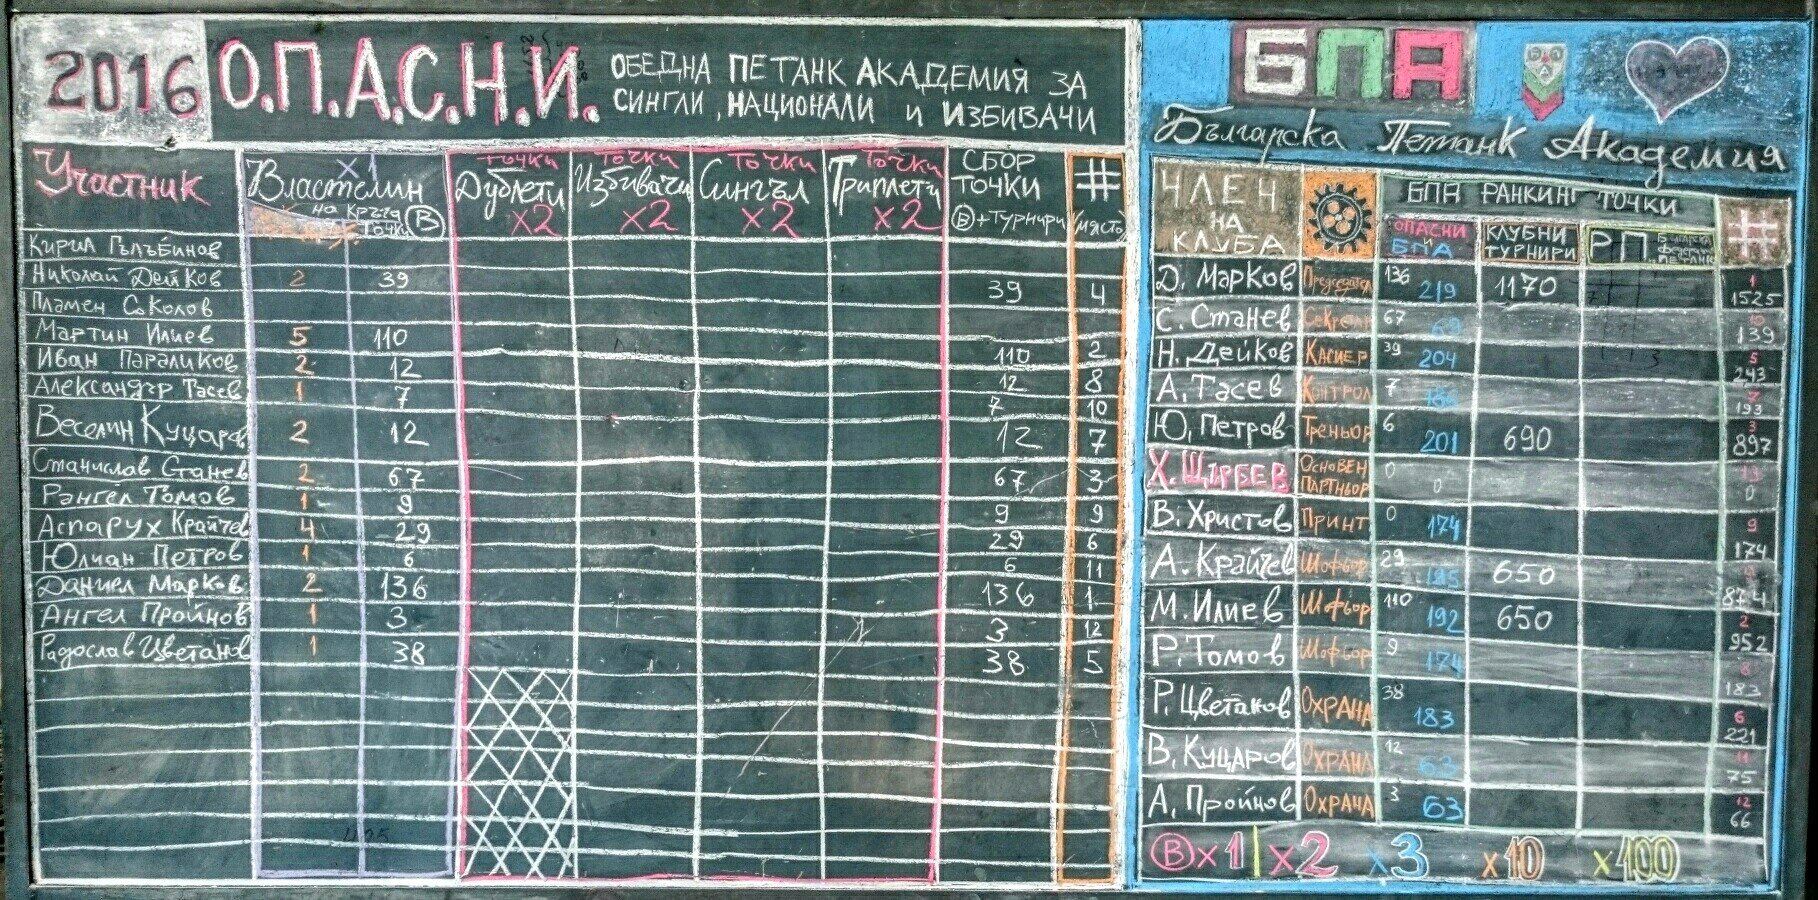 2016 О.П.А.С.Н.И. ОБЕДНА ПЕТАНК АКАДЕМИЯ ЗА
СИНГЛИ, НАЦИОНАЛИ И ИЗБИВАЧИ
Участник
x1
Властелин
на кръга
точки В
точки
Дублети
x2
точки
Избивачи
x2
точки
Сингъл
x2
точки
Триплети
x2
СБОР
ТОЧКИ
В + ТУРНИРИ
#
(място)
Кирил Гълъбинов
Николай Дейков 2 39 39 4
Пламен Соколов
Мартин Илиев 5 110 110 2
Иван Параликов 2 12 12 8
Александър Тасев 1 7 7 10
Веселин Куцаров 2 12 12 7
Станислав Станев 2 67 67 3
Рангел Томов 1 9 9 9
Аспарух Крайчев 4 29 29 6
Юлиан Петров 1 6 6 11
Даниел Марков 2 136 136 1
Ангел Пройнов 1 3 3 12
Радослав Цветанов 1 38 38 5
БПА
Българска Петанк Академия
ЧЛЕН
НА
КЛУБА
БПА РАНКИНГ ТОЧКИ
ОПАСНИ
БПА
КЛУБНИ
ТУРНИРИ
РП
#
Д. Марков 136 219 1170 1 1525
С. Станев Секретар 67 69 10 139
Н. Дейков Касиер 39 204 5 243
А. Тасев Контрол 7 186 7 193
Ю. Петров Треньор 6 201 690 3 897
Х. Щърбев ОСНОВЕН ПАРТНЬОР 0 0 13 0
В. Христов Принт 0 174 9 174
А. Крайчев Шофьор 29 195 650 874
М. Илиев Шофьор 110 192 650 2 952
Р. Томов Шофьор 9 174 8 183
Р. Цветанов ОХРАНА 38 183 6 221
В. Куцаров ОХРАНА 12 63 11 75
А. Пройнов ОХРАНА 3 63 12 66
В x1 x2 x3 x10 x100